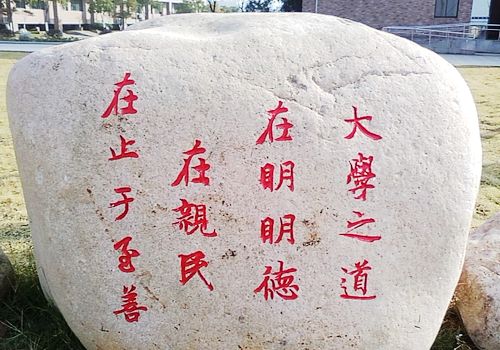 大學之道
在明明德
在親民
在止于至善